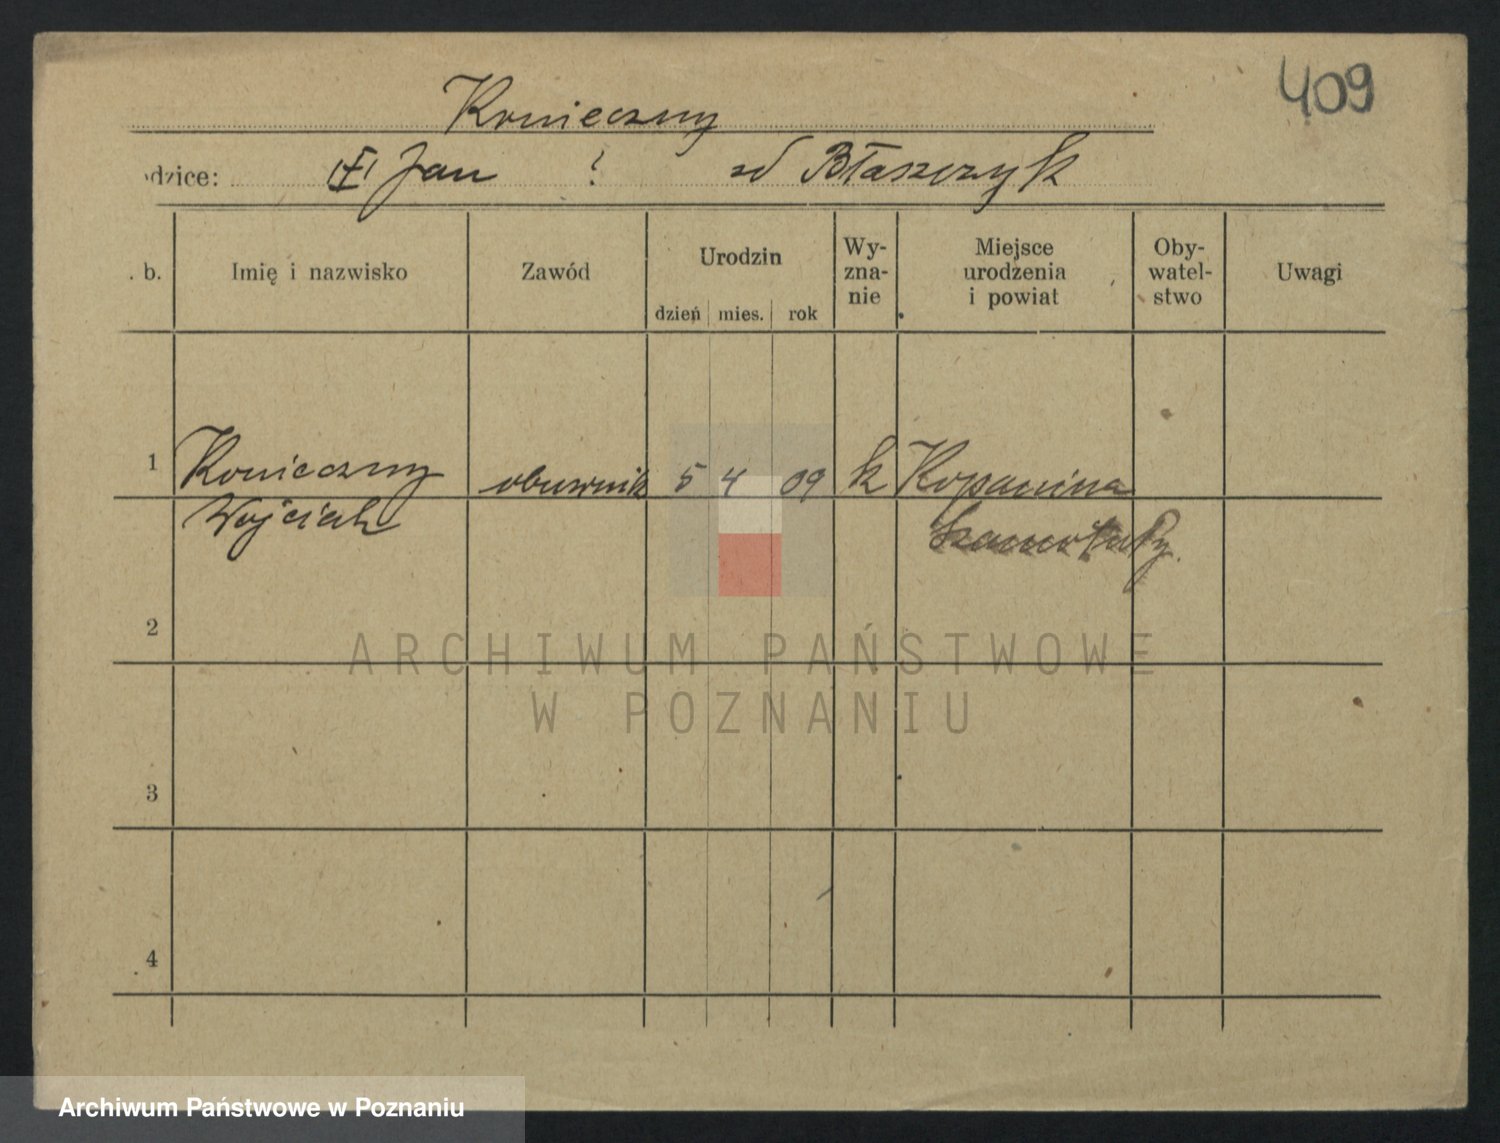 409
Konieczny
odzice: Jan ? zd Błaszczyk
. b. Imię i nazwisko Zawód Urodzin Wy-zna-nie Miejsce urodzenia i powiat Oby-watel-stwo Uwagi
dzień mies. rok
1 Konieczny obuwnik 5 4 09 k Kopanina
Wojciech
Szamotuły
2
3
4
ARCHIWUM PAŃSTWOWE
W POZNANIU
Archiwum Państwowe w Poznaniu